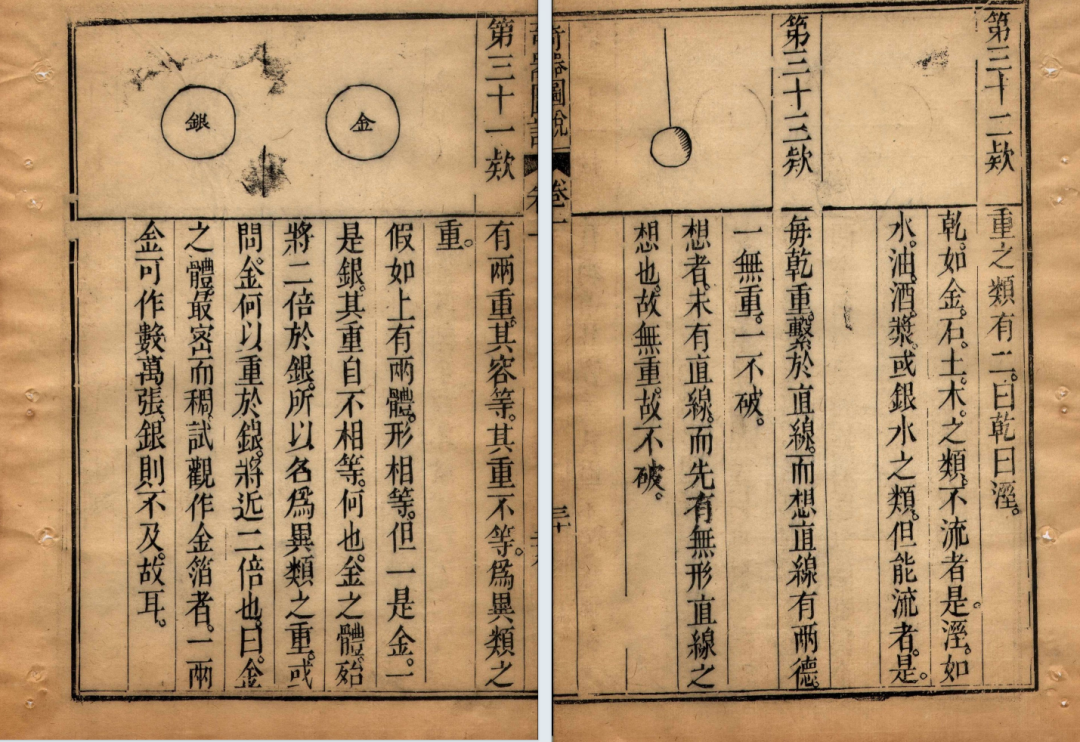 第三十一欵
金
銀
有兩重。其容等。其重不等。爲異類之
重。
假如上有兩體。形相等。但一是金。一
是銀。其重自不相等。何也。金之體殆
將二倍於銀。所以名爲異類之重。或
問。金何以重於銀。將近二倍也。曰。金
之體最密而稠。試觀作金箔者。一兩
金可作數萬張。銀則不及。故耳。
奇器圖說
卷一
三十
第三十二欵
重之類有二。曰乾曰溼。
乾。如金。石。土。木。之類。不流者是。溼。如
水。油。酒。漿。或銀水之類。但能流者。是。
第三十三欵
每乾重。繫於直線。而想直線有兩德。
一無重。一不破。
想者。未有直線。而先有無形直線之
想也。故無重。故不破。